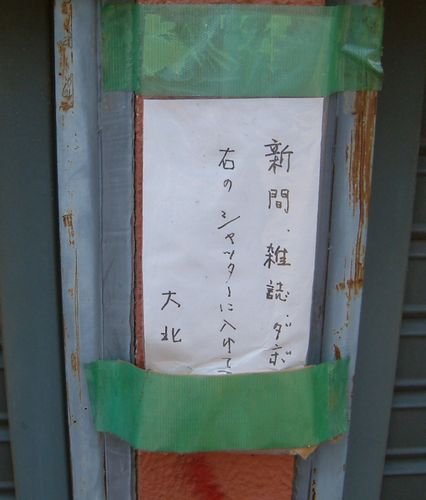 新間、雑誌、ダボ
右のシャッターに入れて
大北